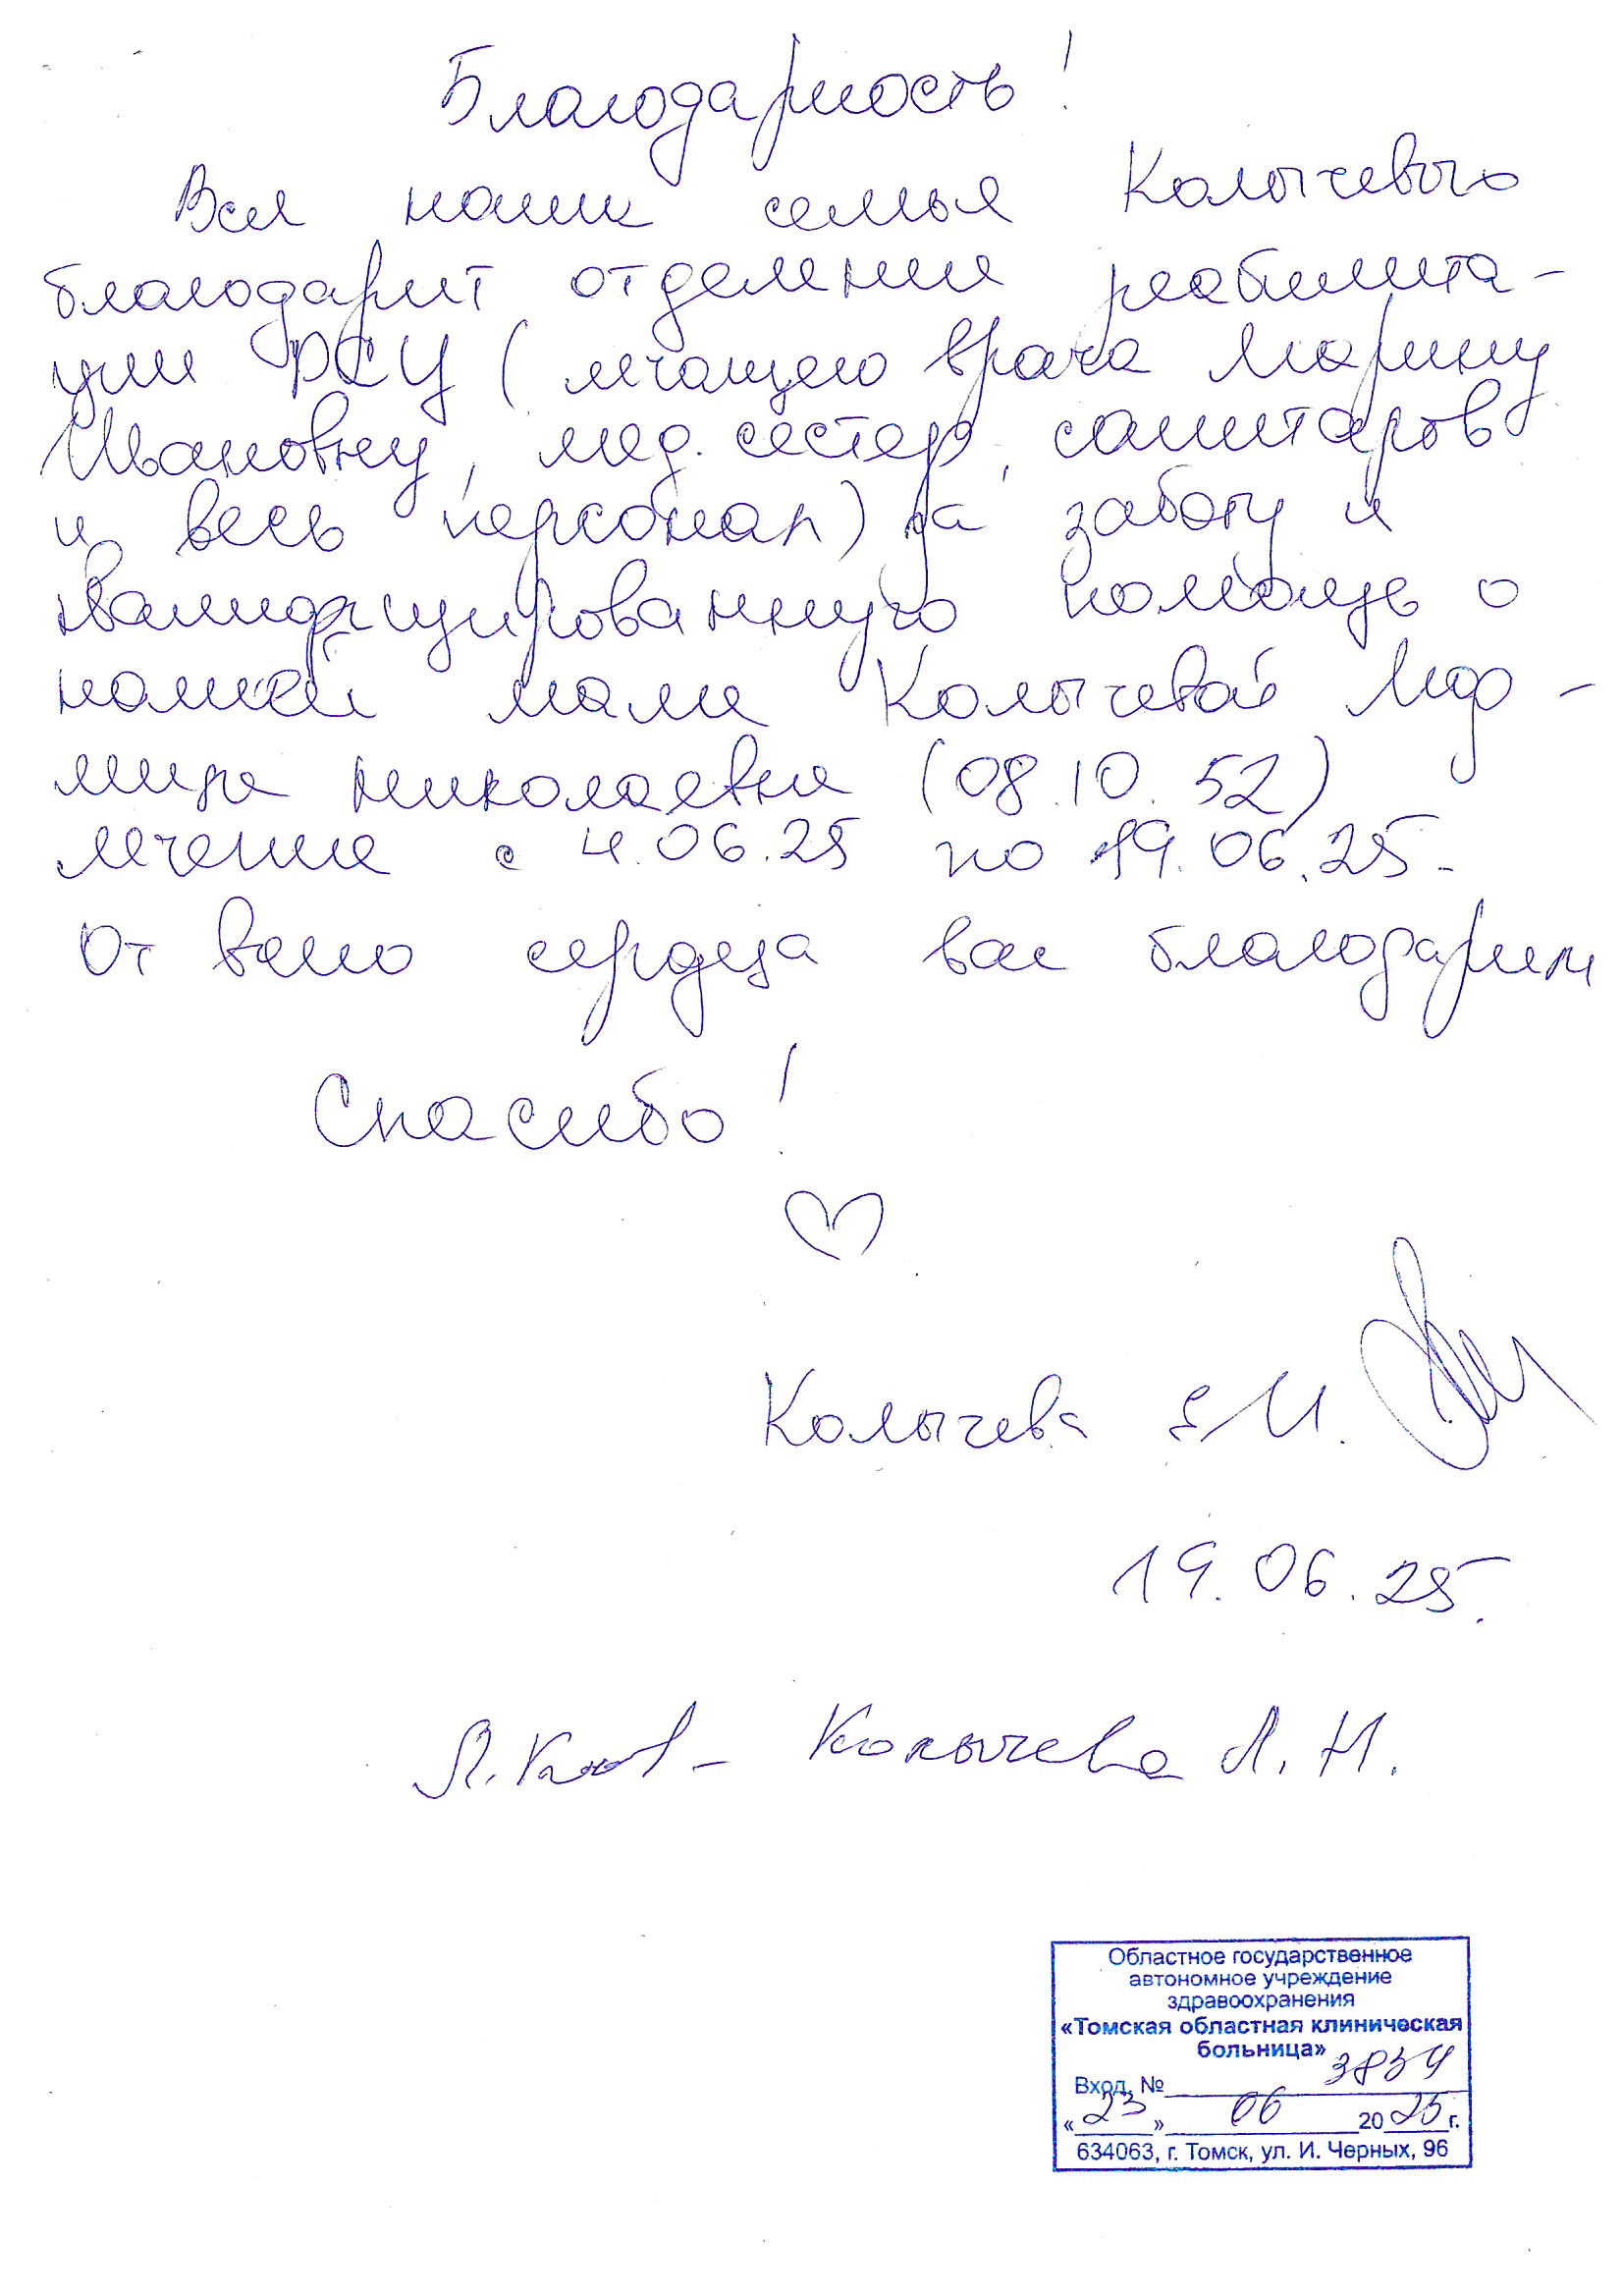 Благодарность!
Вся наша семья Колычевых
благодарит отделение реабилита-
ции РСЦ (лечащего врача Марину
Ивановну, мед. сестер, санитаров
и весь персонал) за заботу и
квалифицированную помощь о
нашей маме Колычевой Люд-
миле Николаевне (08.10.52)
лечение с 4.06.25 по 19.06.25.
От всего сердца вас благодарим
Спасибо!
Колычева Е.И.
19.06.25.
Колычева Л.Н.
Областное государственное
автономное учреждение
здравоохранения
«Томская областная клиническая
больница»
Вход. № 3834
«23» 06 2025 г.
634063, г. Томск, ул. И. Черных, 96